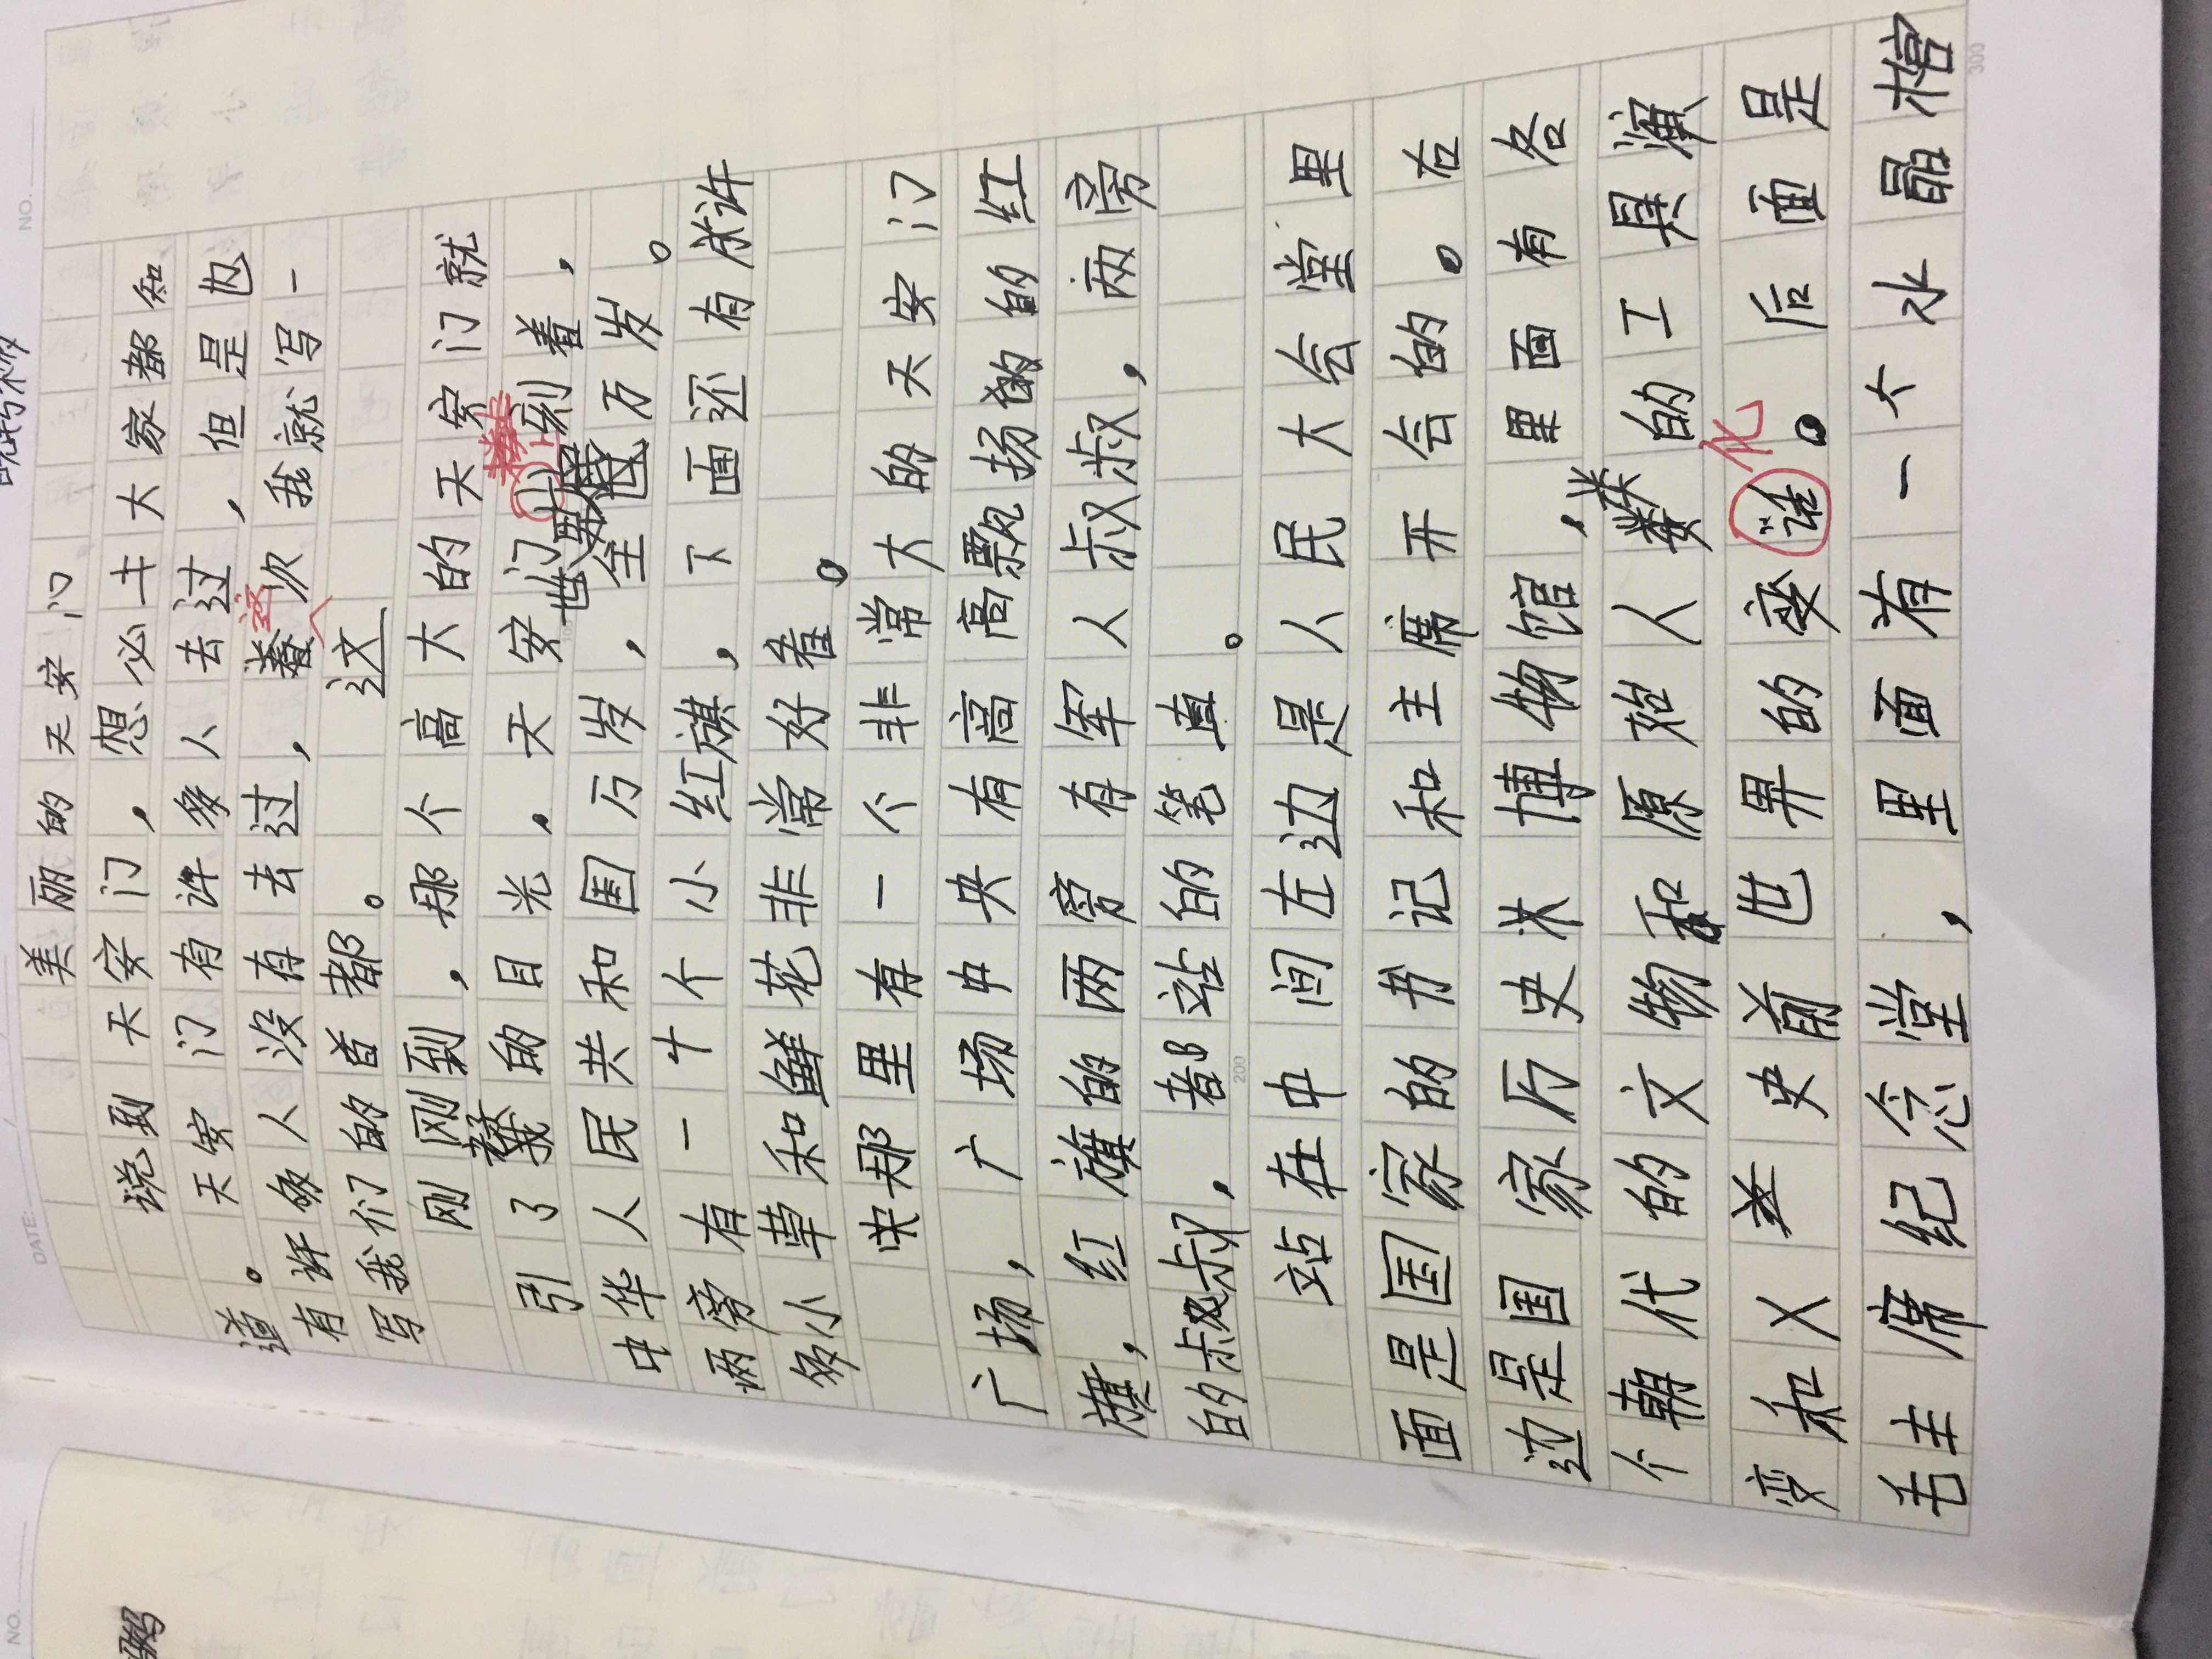 NO.
DATE:
美丽的天安门
说到天安门，想必大家都知
道。天安门有许多人去过，但是也
有许多人没有去过，这次我就写一
写我们的首都。
这
刚刚到，那个高大的天安门就
引了我的目光。天安门上刻着，
中华人民共和国万岁，世界全世万岁。
两旁有一十个小红旗，下面还有许
多小草和鲜花非常好看。
央那里有一个非常大的天安门
广场，广场中央有高高飘扬的红
旗，红旗的两旁有军人叔叔，两旁
的叔叔，都站的笔直。
200
站在中间左边是人民大会堂里
面是国家的书记和主席开会的。右
边是国家历史博物馆，里面有各
个朝代的文物和原始人类的工具演
变和人类史前世界的变化。后面是
毛主席纪念堂，里面有一个水晶棺
300
NO.